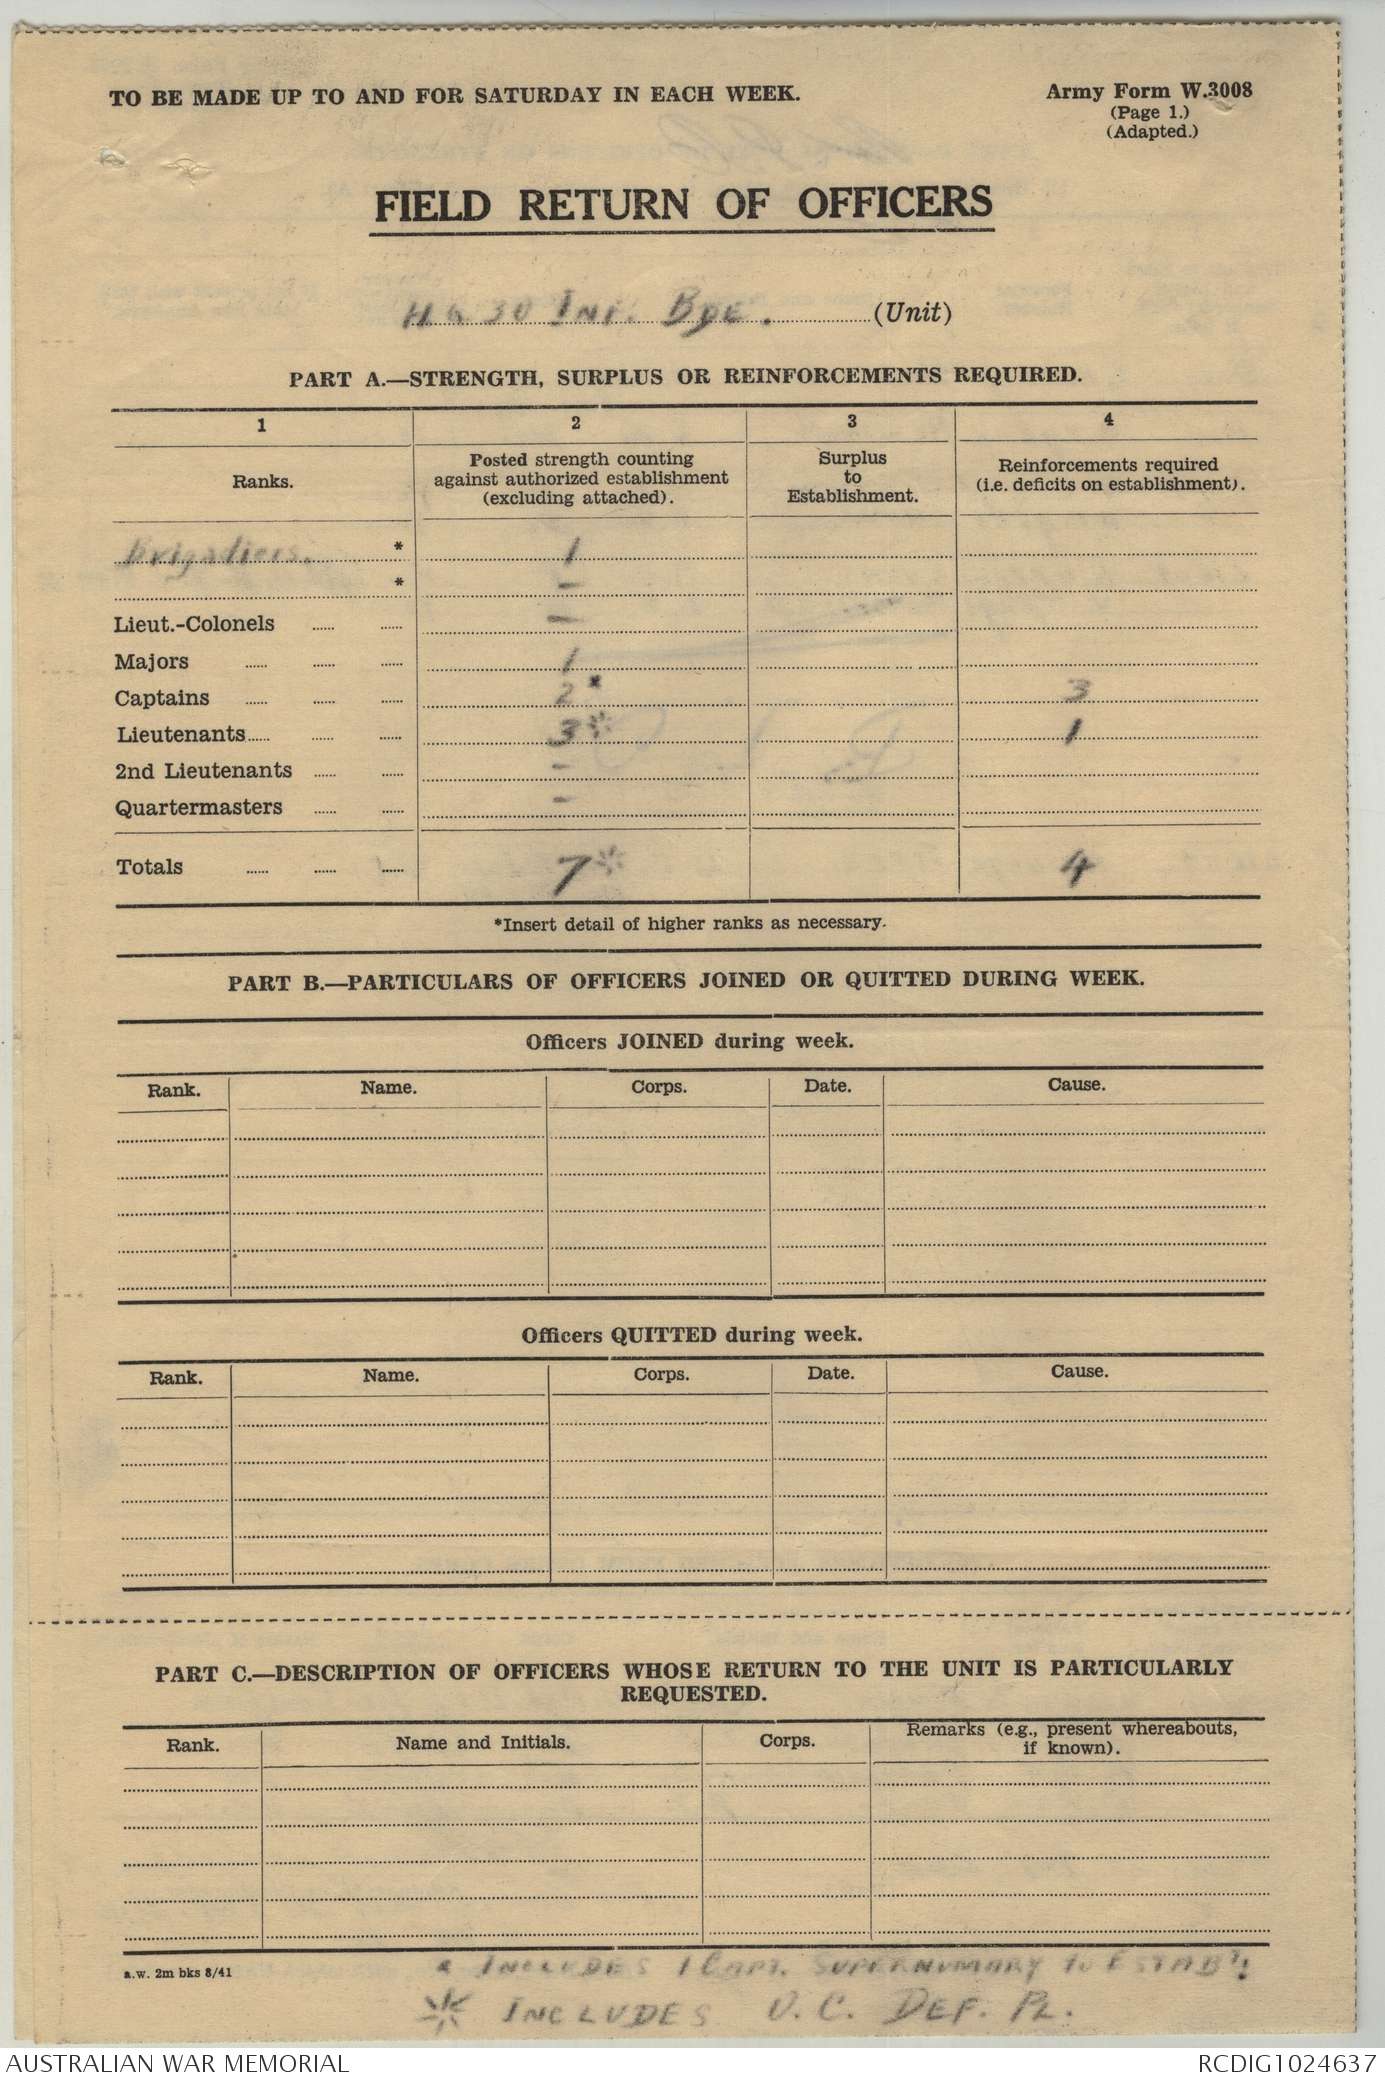 TO BE MADE UP TO AND FOR SATURDAY IN EACH WEEK.
Army Form W.3008
(Page 1.)
(Adapted.)
FIELD RETURN OF OFFICERS
HQ 30 INF. BDE. (Unit)
PART A.—STRENGTH, SURPLUS OR REINFORCEMENTS REQUIRED.
1 2 3 4
Ranks. Posted strength counting against authorized establishment (excluding attached). Surplus to Establishment. Reinforcements required (i.e. deficits on establishment).
Brigadiers. * 1
* -
Lieut.-Colonels -
Majors 1
Captains 2* 3
Lieutenants 3* 1
2nd Lieutenants -
Quartermasters -
Totals 7* 4
*Insert detail of higher ranks as necessary.
PART B.—PARTICULARS OF OFFICERS JOINED OR QUITTED DURING WEEK.
Officers JOINED during week.
Rank. Name. Corps. Date. Cause.
Officers QUITTED during week.
Rank. Name. Corps. Date. Cause.
PART C.—DESCRIPTION OF OFFICERS WHOSE RETURN TO THE UNIT IS PARTICULARLY
REQUESTED.
Rank. Name and Initials. Corps. Remarks (e.g., present whereabouts, if known).
a.w. 2m bks 8/41
* INCLUDES 1 CAPT. SUPERNUMARY TO ESTABT.
* INCLUDES O.C. DEF. PL.
AUSTRALIAN WAR MEMORIAL
RCDIG1024637